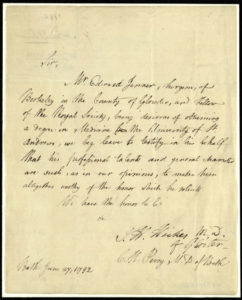 Sir,
Mr Edward Jenner, Surgeon, of
Berkeley in the County of Gloucester, and Fellow
of the Royal Society, being desirous of obtaining
a degree in Medicine from the University of St
Andrews, we beg leave to testify in his behalf
that his professional talents and general character
are such, as in our opinion, to render him
altogether worthy of the honor which he solicits.
We have the honor to &
J. H. M.D.
of
C. H. Parry, M.D of Bath
Bath June 27, 1792